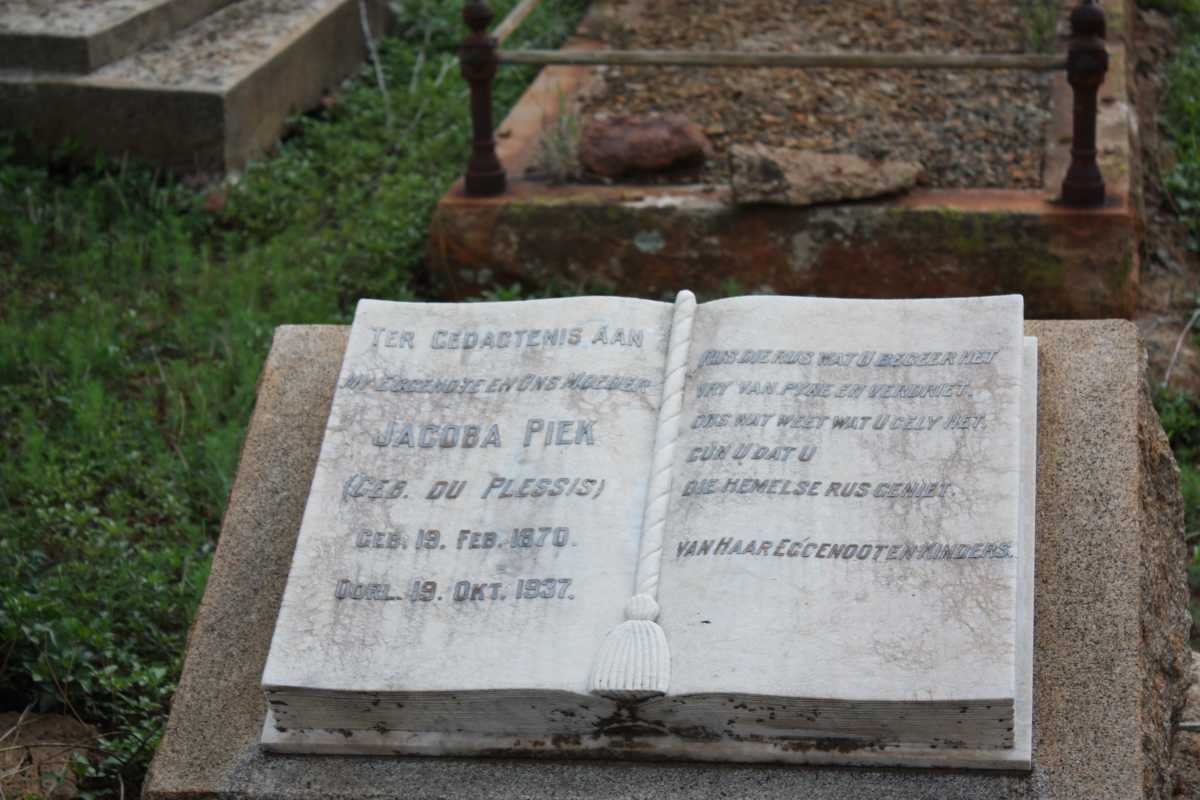 TER GEDAGTENIS AAN
MY EGGENOTE EN ONS MOEDER
JACOBA PIEK
(GEB. DU PLESSIS)
GEB. 19. FEB. 1870.
OORL. 19. OKT. 1937.
RUS DIE RUS WAT U BEGEER HET
VRY VAN PYNE EN VERDRIET.
ONS WAT WEET WAT U GELY HET.
GUN U DAT U
DIE HEMELSE RUS GENIET.
VAN HAAR EGGENOOT EN KINDERS.